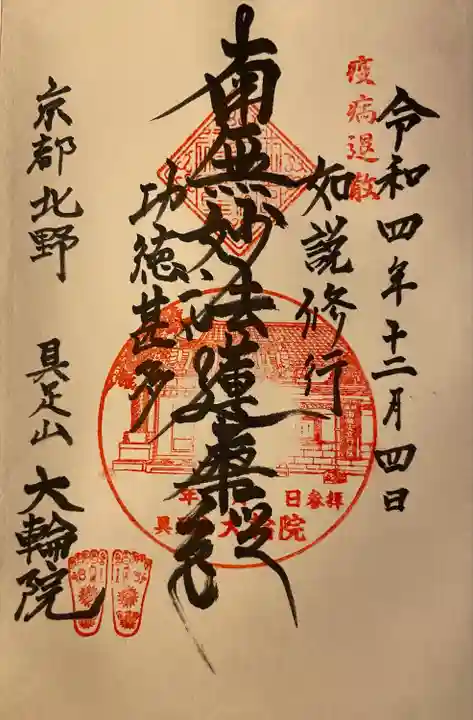 疫病退散
令和四年十二月四日
如説修行
南無妙法蓮華経
功徳甚多
京都北野 具足山 大輪院
年 日参拝
具 大輪院